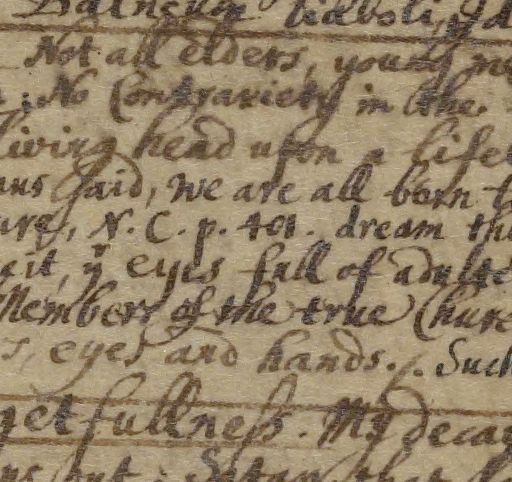 diaboli,
Not all elders, young
; No Contrariety in the
living head upon a life
said, we are all born
N. C. p. 401. dream
it, yr eyes full of adulte
Members of the true Chur
eyes and hands. Such
getfullness. My decay
but; Satan that